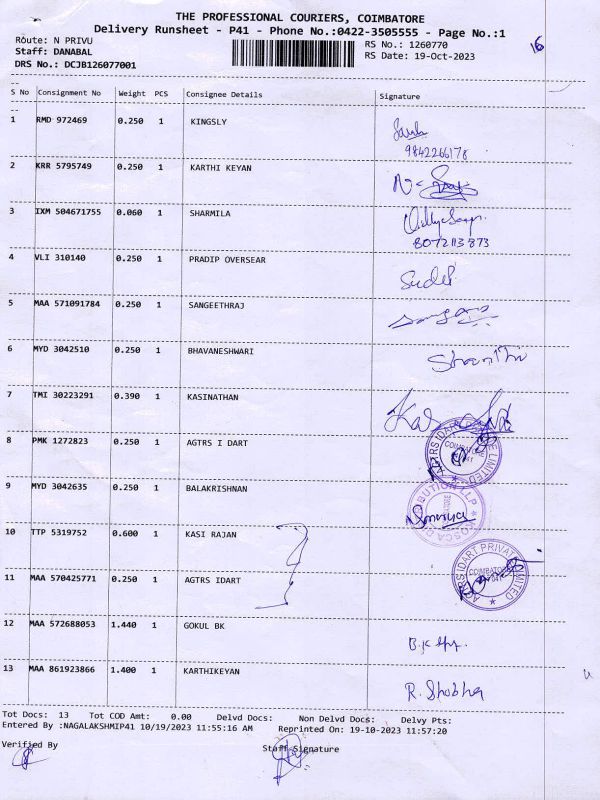 THE PROFESSIONAL COURIERS, COIMBATORE
Delivery Runsheet - P41 - Phone No.:0422-3505555 - Page No.:1
Route: N PRIVU RS No.: 1260770 16
Staff: DANABAL RS Date: 19-Oct-2023
DRS No.: DCJB126077001
S No Consignment No Weight PCS Consignee Details Signature
1 RMD 972469 0.250 1 KINGSLY
9842266178
2 KRR 5795749 0.250 1 KARTHI KEYAN
3 IXM 504671755 0.060 1 SHARMILA
8072113873
4 VLI 310140 0.250 1 PRADIP OVERSEAR
5 MAA 571091784 0.250 1 SANGEETHRAJ
6 MYD 3042510 0.250 1 BHAVANESHWARI
7 TMI 30223291 0.390 1 KASINATHAN
8 PMK 1272823 0.250 1 AGTRS I DART
9 MYD 3042635 0.250 1 BALAKRISHNAN
10 TTP 5319752 0.600 1 KASI RAJAN
11 MAA 570425771 0.250 1 AGTRS IDART
AGTRS IDART PRIVATE LIMITED
12 MAA 572688053 1.440 1 GOKUL BK
13 MAA 861923866 1.400 1 KARTHIKEYAN R. Shobha
Tot Docs: 13 Tot COD Amt: 0.00 Delvd Docs: Non Delvd Docs: Delvy Pts:
Entered By :NAGALAKSHMIP41 10/19/2023 11:55:16 AM Reprinted On: 19-10-2023 11:57:20
Verified By Staff Signature